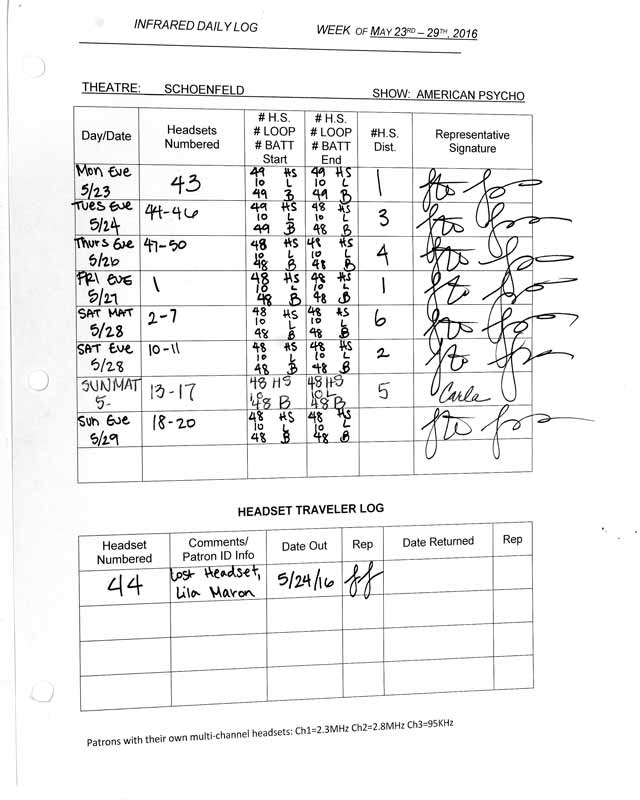 INFRARED DAILY LOG WEEK OF MAY 23RD – 29TH, 2016
THEATRE: SCHOENFELD SHOW: AMERICAN PSYCHO
Day/Date Headsets Numbered # H.S. # LOOP # BATT Start # H.S. # LOOP # BATT End #H.S. Dist. Representative Signature
Mon Eve 5/23 43 49 HS 10 L 49 B 49 HS 10 L 49 B 1
Tues Eve 5/24 44-46 49 HS 10 L 49 B 48 HS 10 L 48 B 3
Thurs Eve 5/26 47-50 48 HS 10 L 48 B 48 HS 10 L 48 B 4
FRI EVE 5/27 1 48 HS 10 L 48 B 48 HS 10 L 48 B 1
SAT MAT 5/28 2-7 48 HS 10 L 48 B 48 HS 10 L 48 B 6
SAT Eve 5/28 10-11 48 HS 10 L 48 B 48 HS 10 L 48 B 2
SUN MAT 5- 13-17 48 HS 10 48 B 48 HS 10 L 48 B 5 Carla
Sun Eve 5/29 18-20 48 HS 10 L 48 B 48 HS 10 L 48 B
HEADSET TRAVELER LOG
Headset Numbered Comments/ Patron ID Info Date Out Rep Date Returned Rep
44 Lost Headset, Lila Maron 5/24/16 JJ
Patrons with their own multi-channel headsets: Ch1=2.3MHz Ch2=2.8MHz Ch3=95KHz